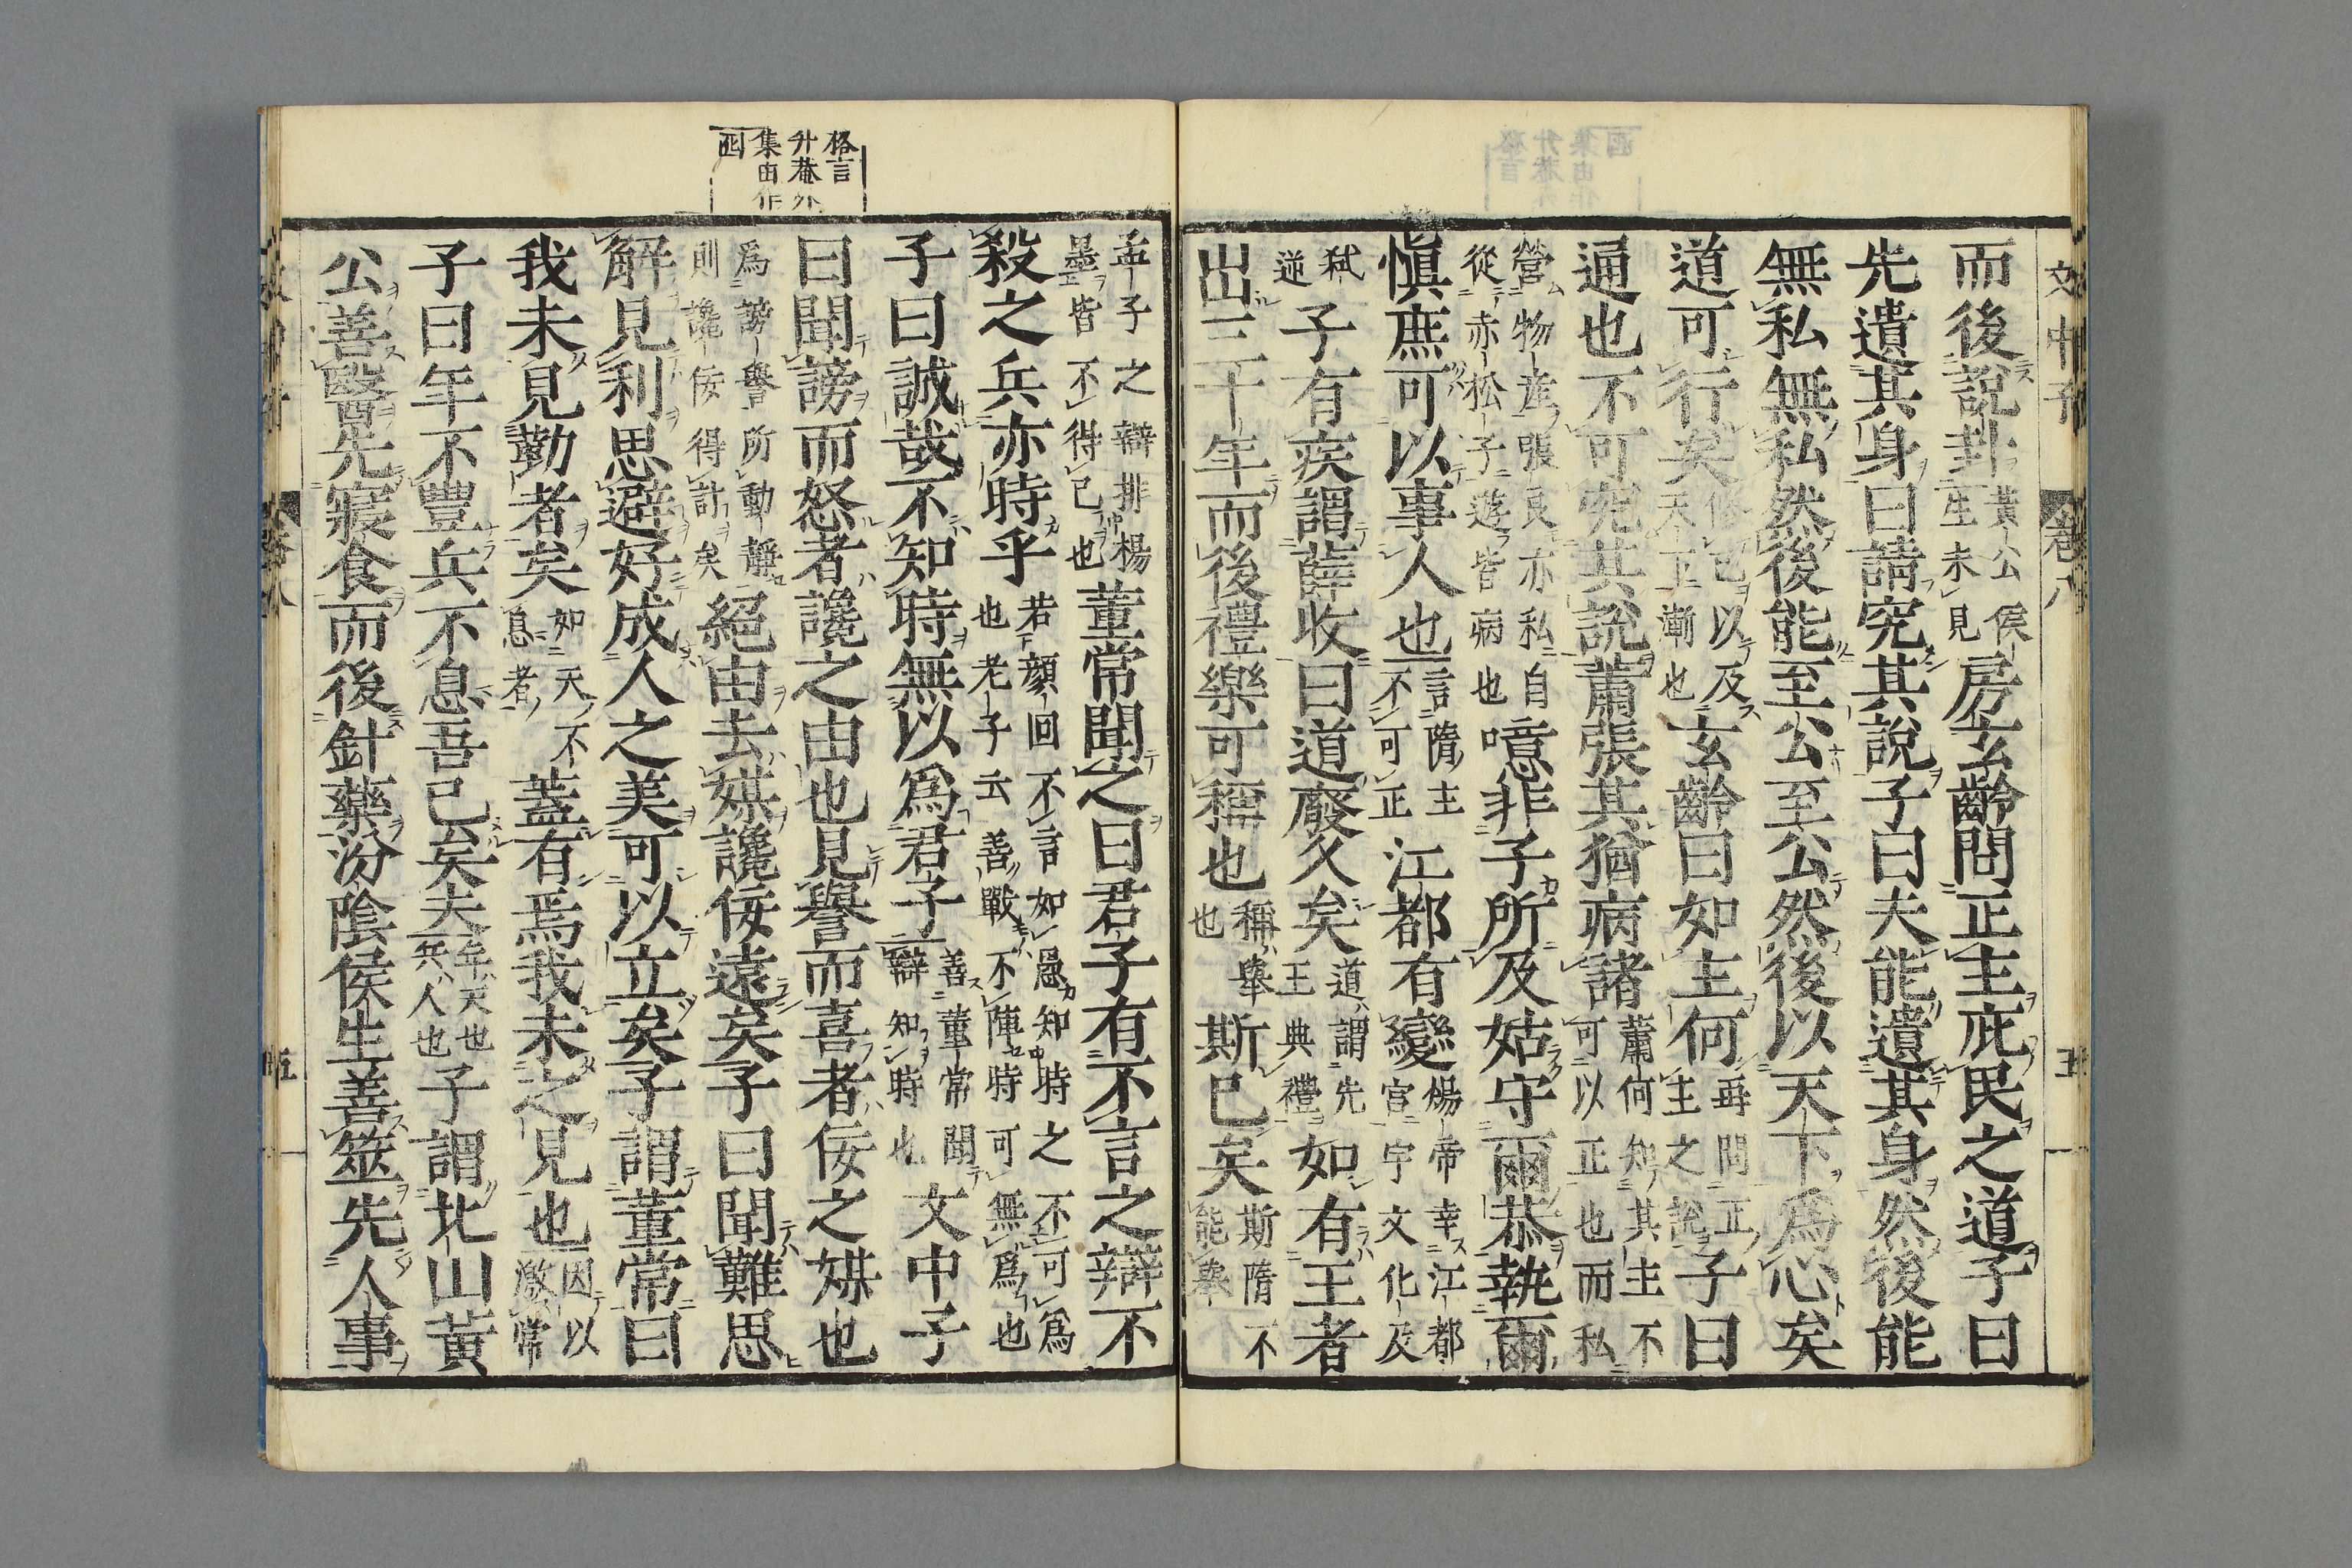 文中子　卷八　五
而後説卦黃公侯生未見房玄齡問正主庇民之道子曰
先遺其身曰請究其説子曰夫能遺其身然後能
無私無私然後能至公至公然後以天下爲心矣
道可行矣修己以及天下漸也玄齡曰如主何再問正主之説子曰
通也不可究其説蕭張其猶病諸蕭何知其主不可以正也而私
營物産張良亦私自從赤松子遊皆病也噫非子所及姑守爾恭執爾
愼庶可以事人也言隋主不可正江都有變煬帝幸江都宮宇文化及
弑逆子有疾謂薛收曰道廢久矣道謂先王典禮如有王者
出三十年而後禮樂可稱也稱舉也斯已矣斯隋不能舉
格言
升菴外
集由作
囮
孟子之辯排楊墨皆不得已也董常聞之曰君子有不言之辯不
殺之兵亦時乎若顔回不言如愚知時之不可爲也老子云善戰不陣時可無爲也
子曰誠哉不知時無以爲君子善董常聞辯知時也文中子
曰聞謗而怒者讒之由也見譽而喜者佞之媒也
爲謗譽所動靜則讒佞得計矣絕由去媒讒佞遠矣子曰聞難思
解見利思避好成人之美可以立矣子謂董常曰
我未見勤者矣如天不息者蓋有焉我未之見也因以激常
子曰年不豐兵不息吾已矣夫年天也兵人也子謂北山黃
公善醫先寢食而後針藥汾陰侯生善筮先人事